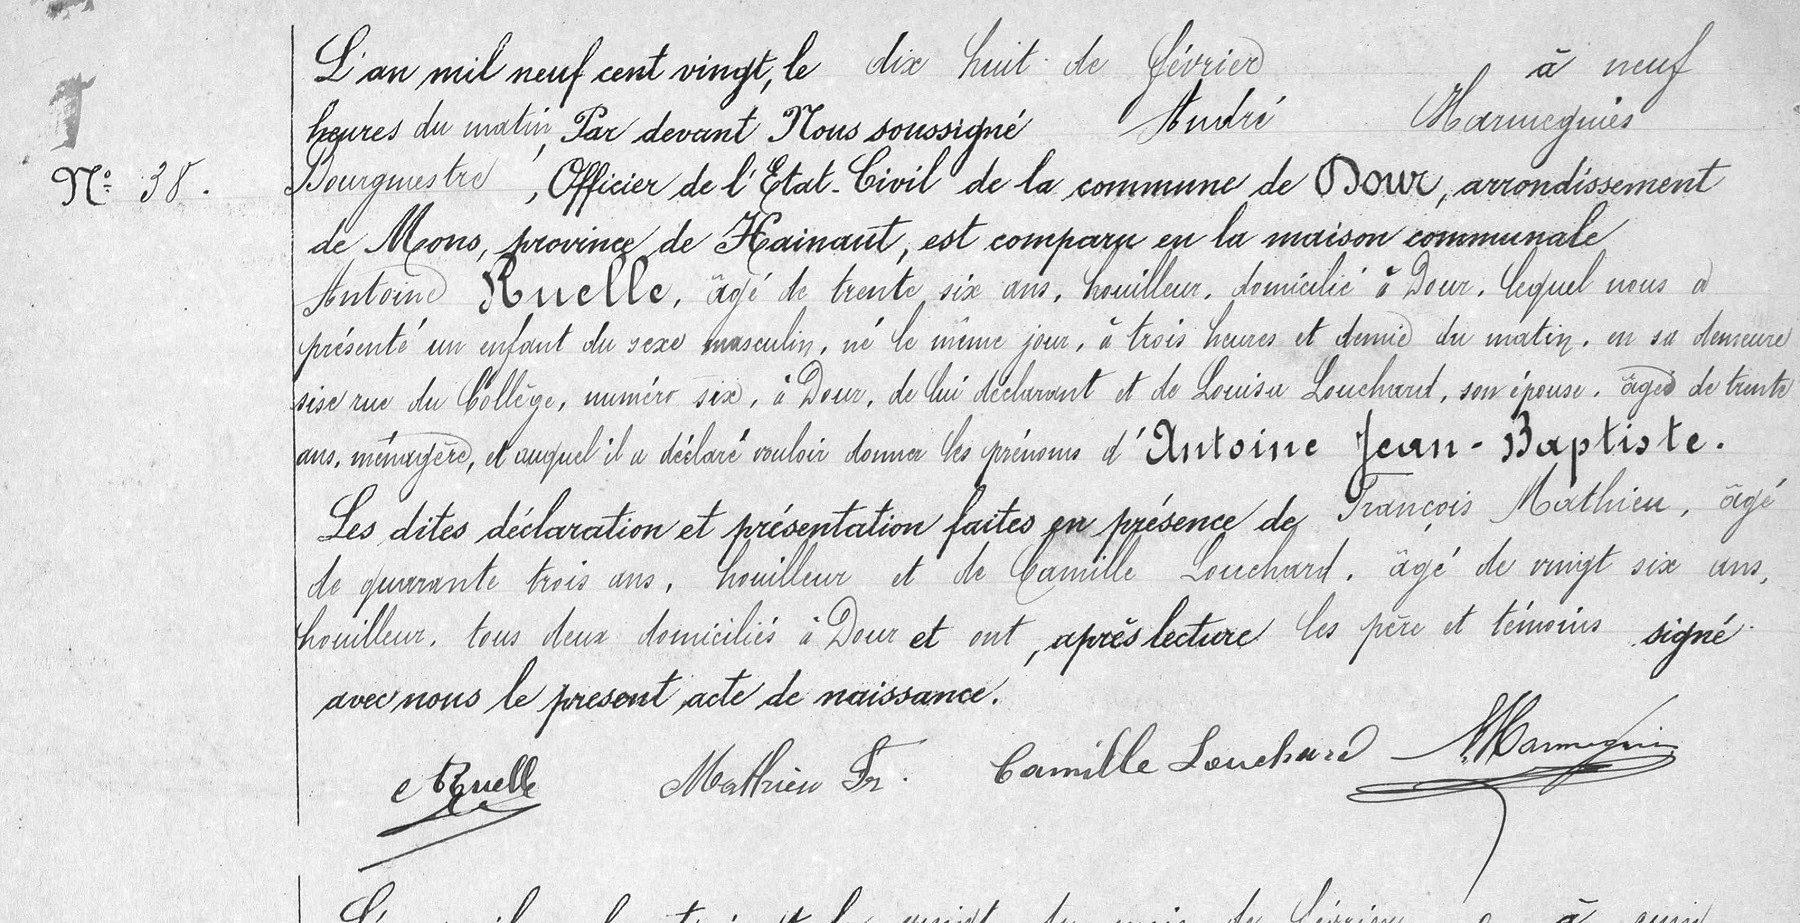 L'an mil neuf cent vingt, le dix huit de février à neuf
heures du matin, Par devant Nous soussigné André Harmegnies
Nº 38. Bourgmestre, Officier de l'Etat-Civil de la commune de Dour, arrondissement
de Mons, province de Hainaut, est comparu en la maison communale
Antoine Ruelle, âgé de trente six ans, houilleur, domicilié à Dour, lequel nous a
présenté un enfant du sexe masculin, né le même jour, à trois heures et demie du matin, en sa demeure
sise rue du Collège, numéro six, à Dour, de lui déclarant et de Louisa Louchard, son épouse, âgée de trente
ans, ménagère, et auquel il a déclaré vouloir donner les prénoms d'Antoine Jean-Baptiste.
Les dites déclaration et présentation faites en présence de François Mathieu, âgé
de quarante trois ans, houilleur et de Camille Louchard, âgé de vingt six ans,
houilleur, tous deux domiciliés à Dour et ont, après lecture les père et témoins signé
avec nous le present acte de naissance.
A Ruelle Mathieu Fr. Camille Louchard A Harmegnies